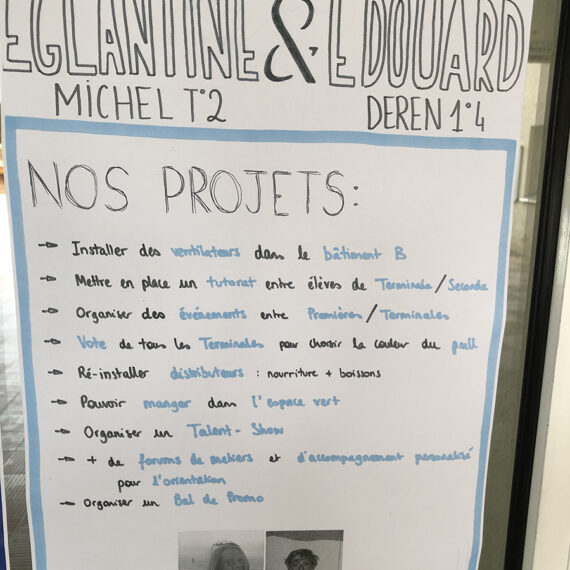 EGLANTINE & EDOUARD
MICHEL T°2 DEREN 1°4
NOS PROJETS:
→ Installer des ventilateurs dans le bâtiment B
→ Mettre en place un tutorat entre élèves de Terminale/Seconde
→ Organiser des événements entre Premières/Terminales
→ Vote de tous les Terminales pour choisir la couleur du pull
→ Ré-installer distributeurs : nourriture + boissons
→ Pouvoir manger dans l'espace vert
→ Organiser un Talent-Show
→ + de forums de métiers et d'accompagnement personalisé
pour l'orientation
→ Organiser un Bal de Promo